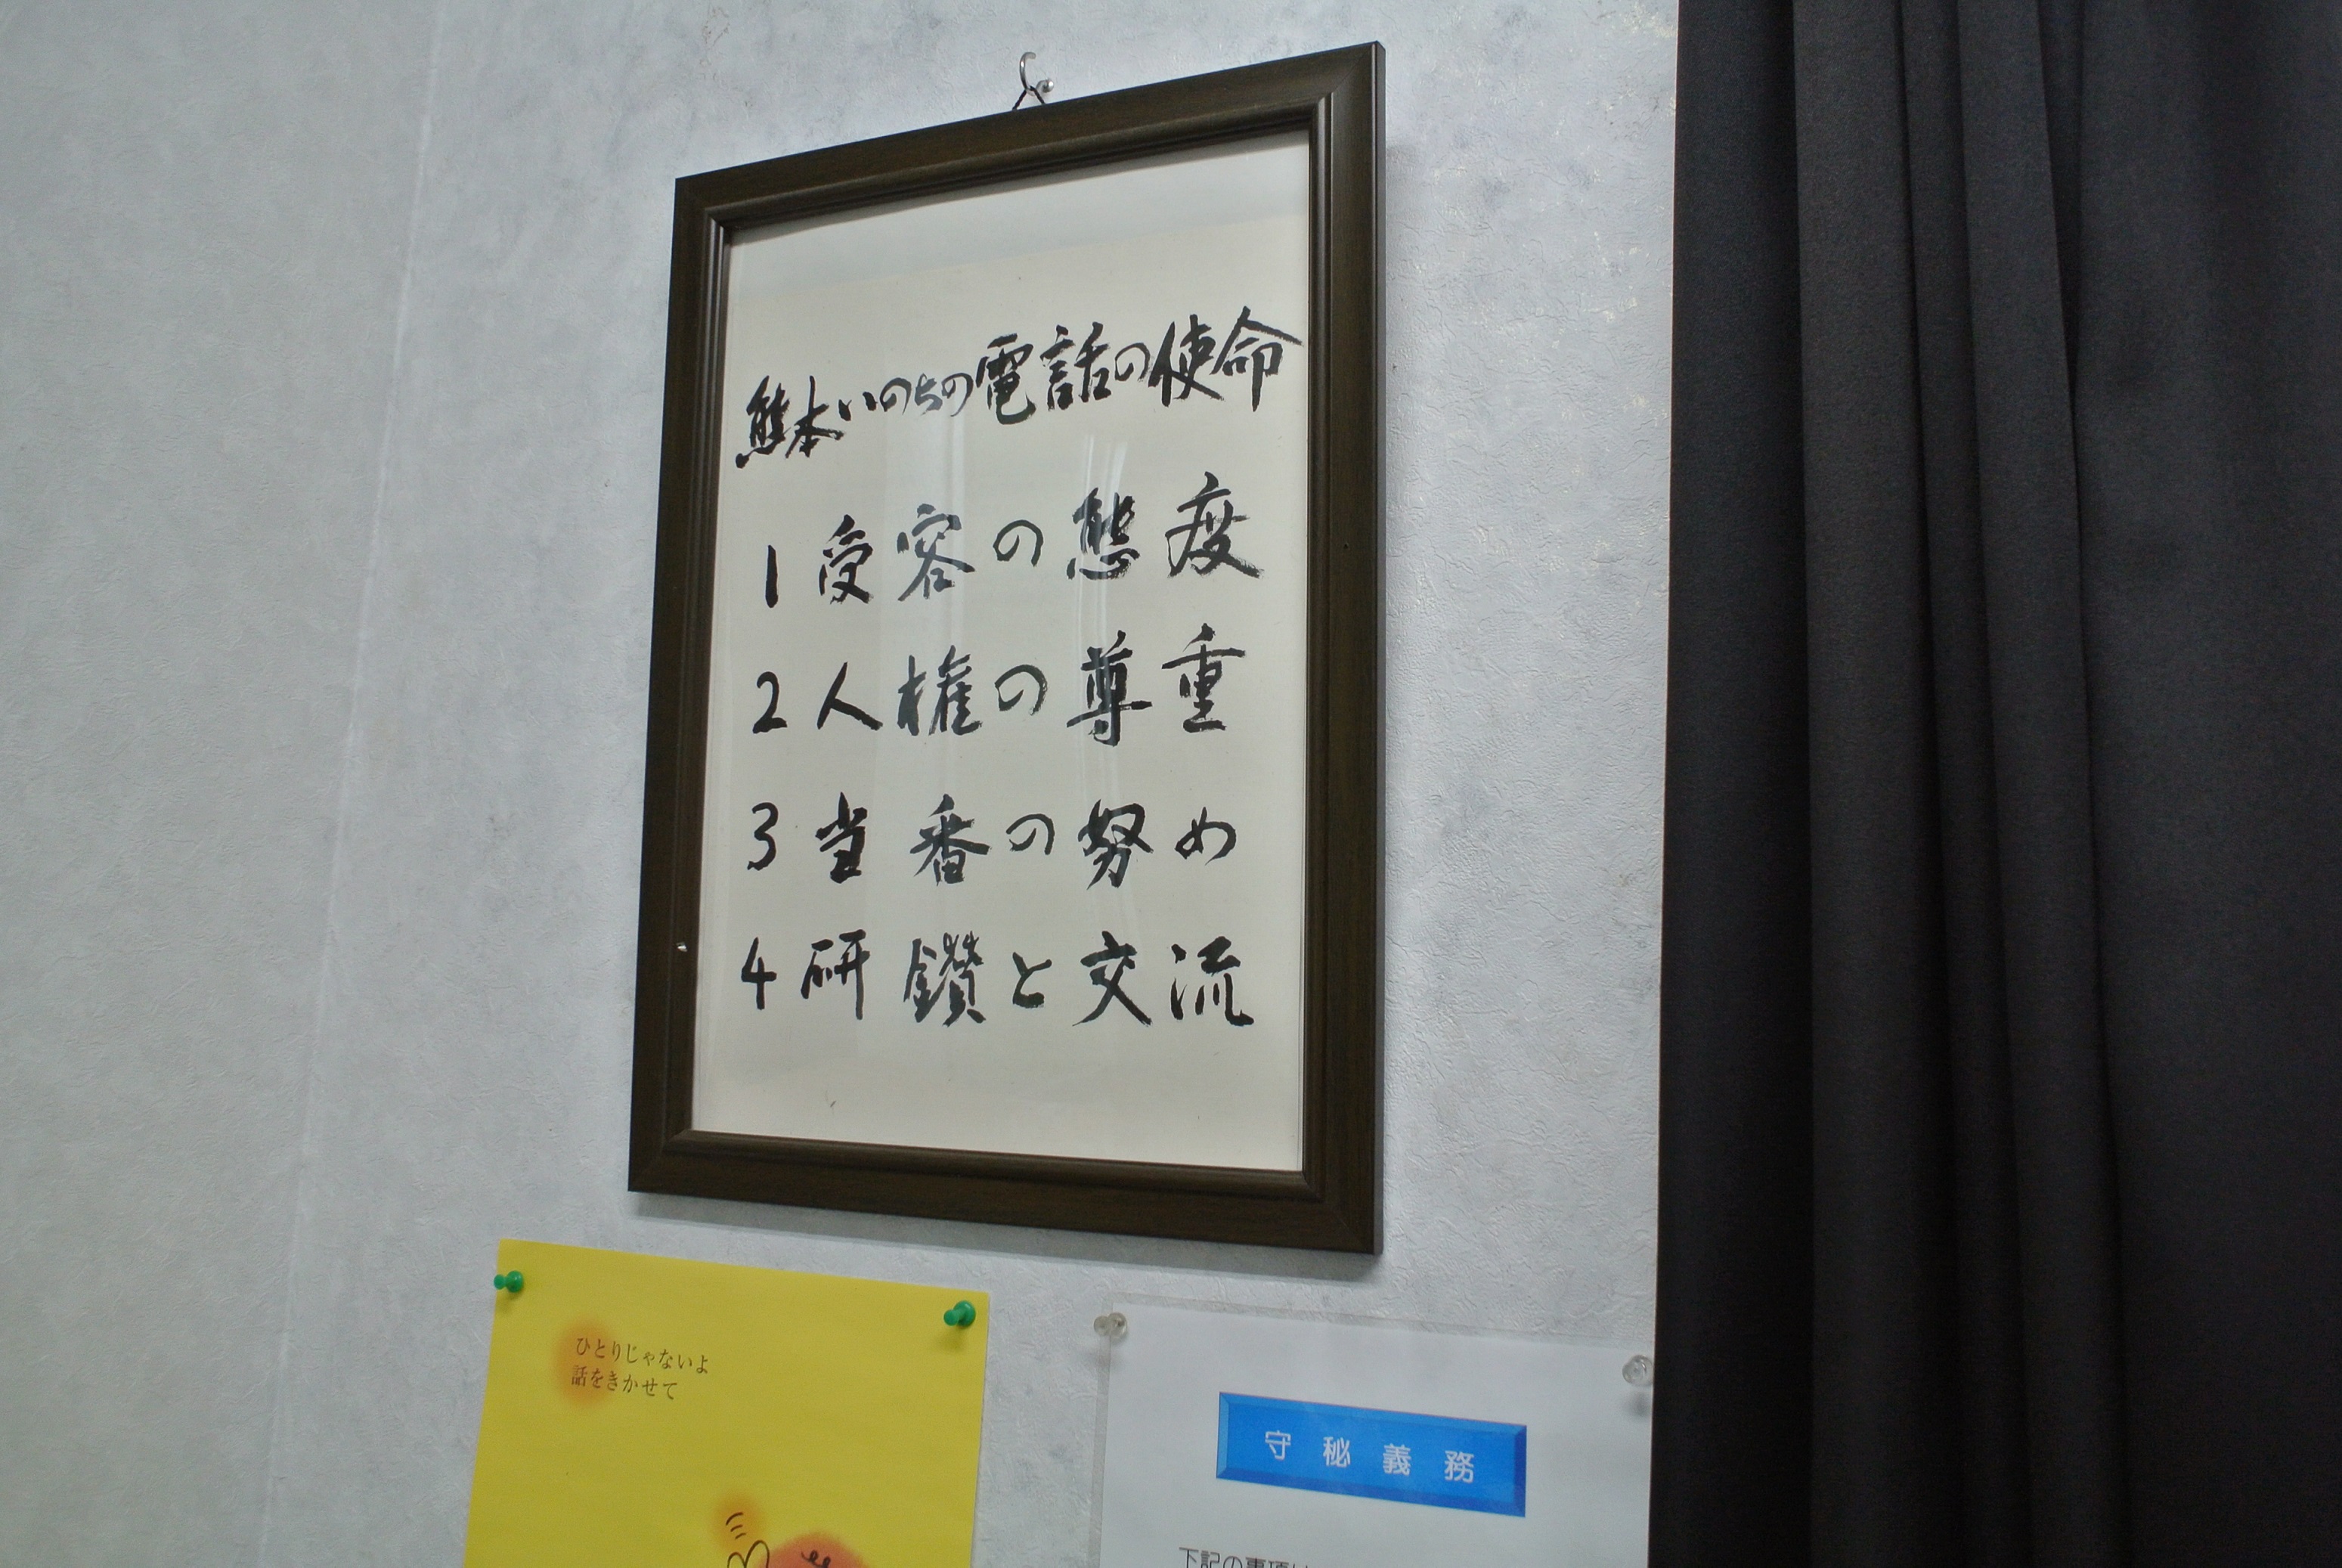 熊本いのちの電話の使命
1 受容の態度
2 人権の尊重
3 当番の努め
4 研鑽と交流
ひとりじゃないよ
話をきかせて
守秘義務
下記の事項は